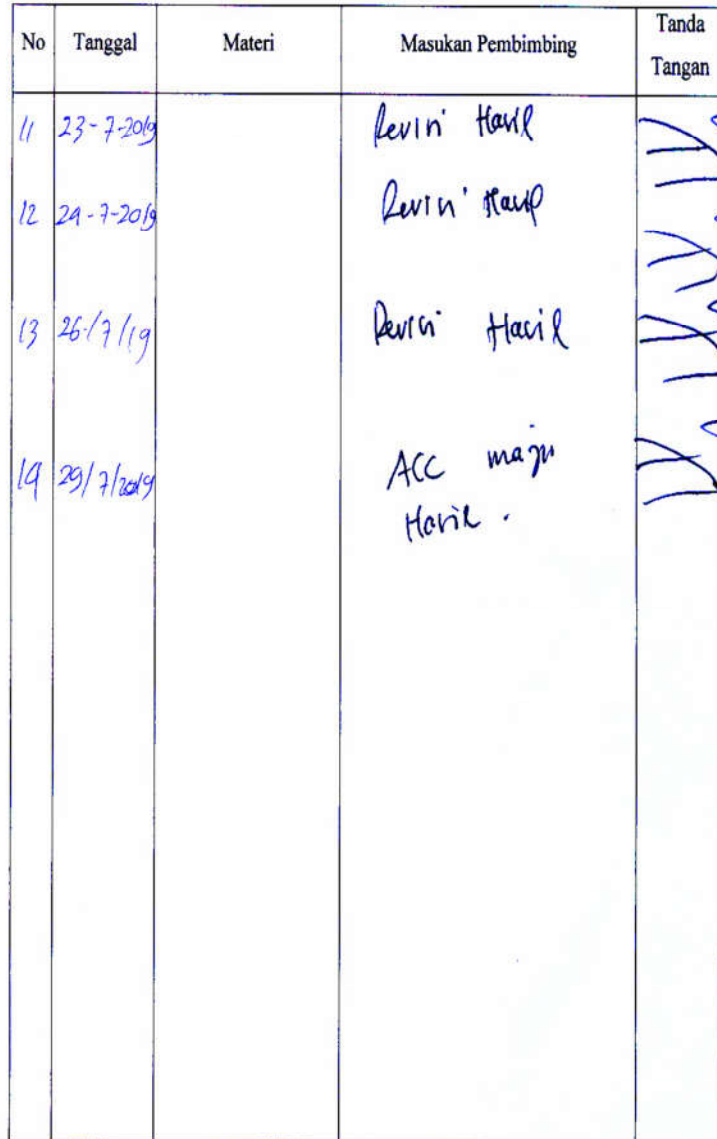 No Tanggal Materi Masukan Pembimbing Tanda
Tangan
11 23-7-2019 Revisi Hasil
12 24-7-2019 Revisi Hasil
13 26/7/19 Revisi Hasil
14 29/7/2019 ACC maju
Hasil.